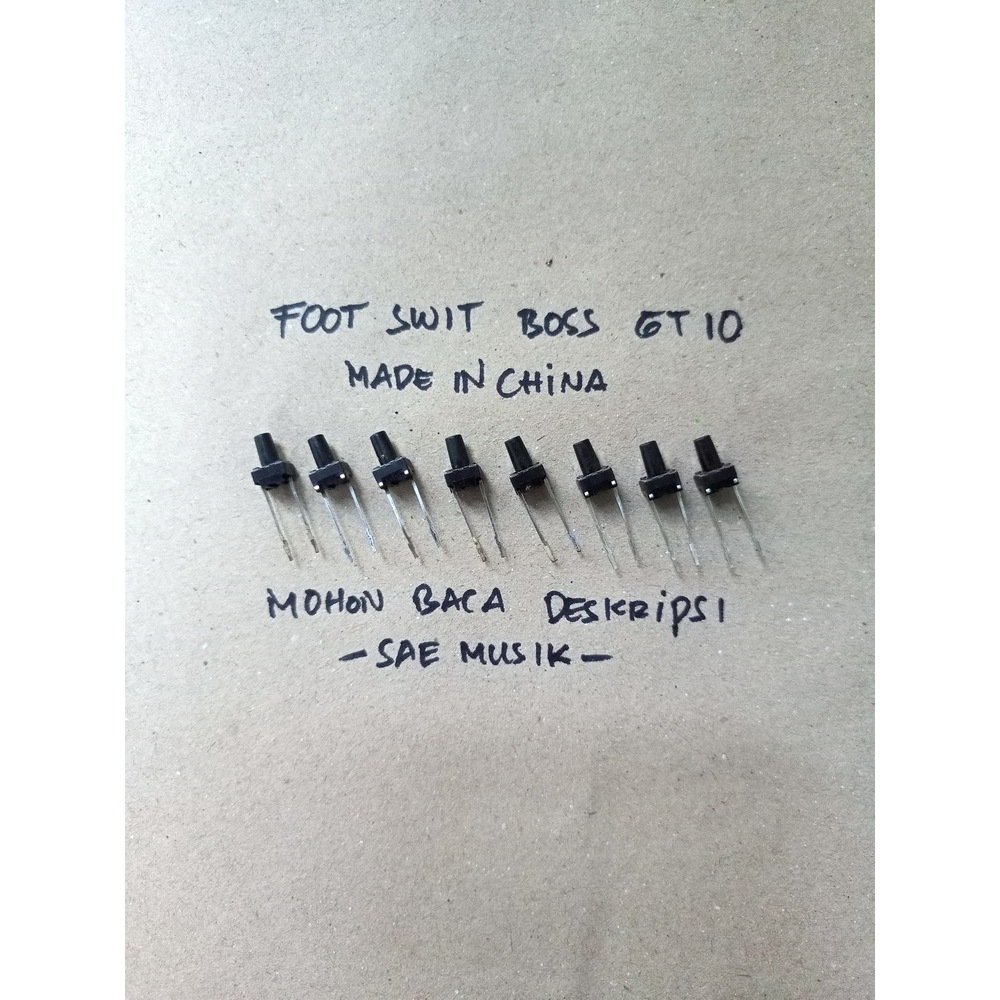 FOOT SWIT BOSS GT 10
MADE IN CHINA
MOHON BACA DESKRIPSI
- SAE MUSIK -